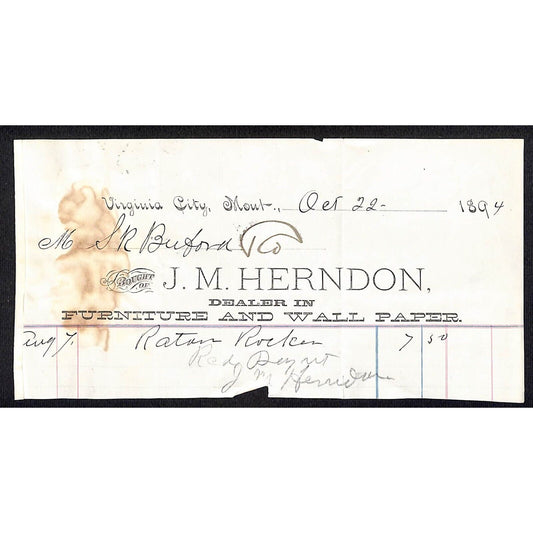 Virginia City, Mont., Oct 22 1894
M S R Buford & Co
BOUGHT OF J. M. HERNDON,
DEALER IN
FURNITURE AND WALL PAPER.
Aug 7. Ratan Rocker 7 50
Recd Paymt
J M Herndon